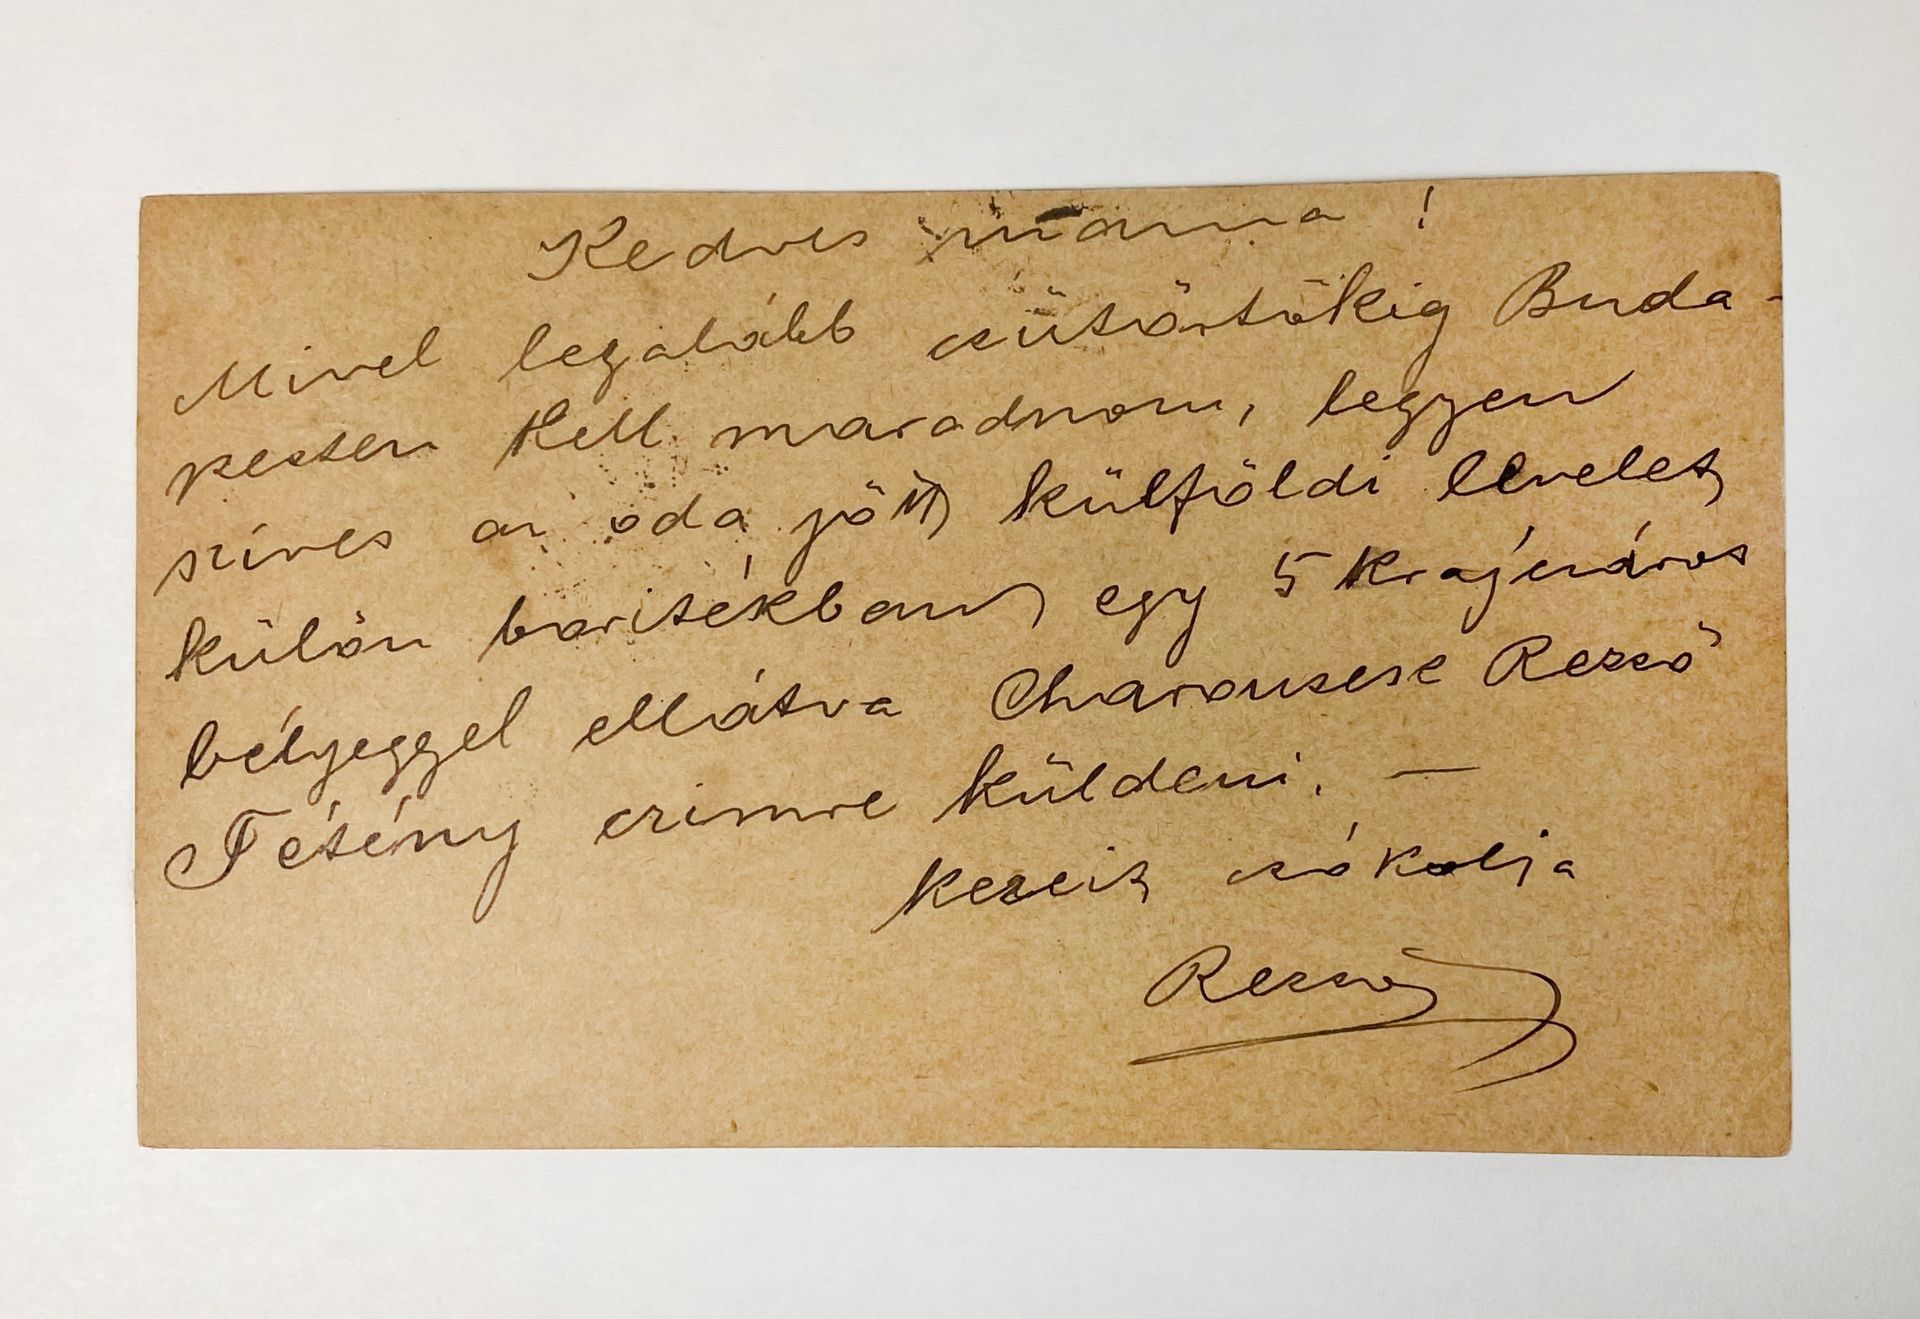 Kedves mama!
Mivel legalább csütörtökig Buda-
pesten kell maradnom, legyen
szives az oda jött külföldi levelet
külön boritékban egy 5 krajczáros
bélyeggel ellátva Charousek Rezső
Tétény czimre küldeni. —
kezeit csókolja
Rezső